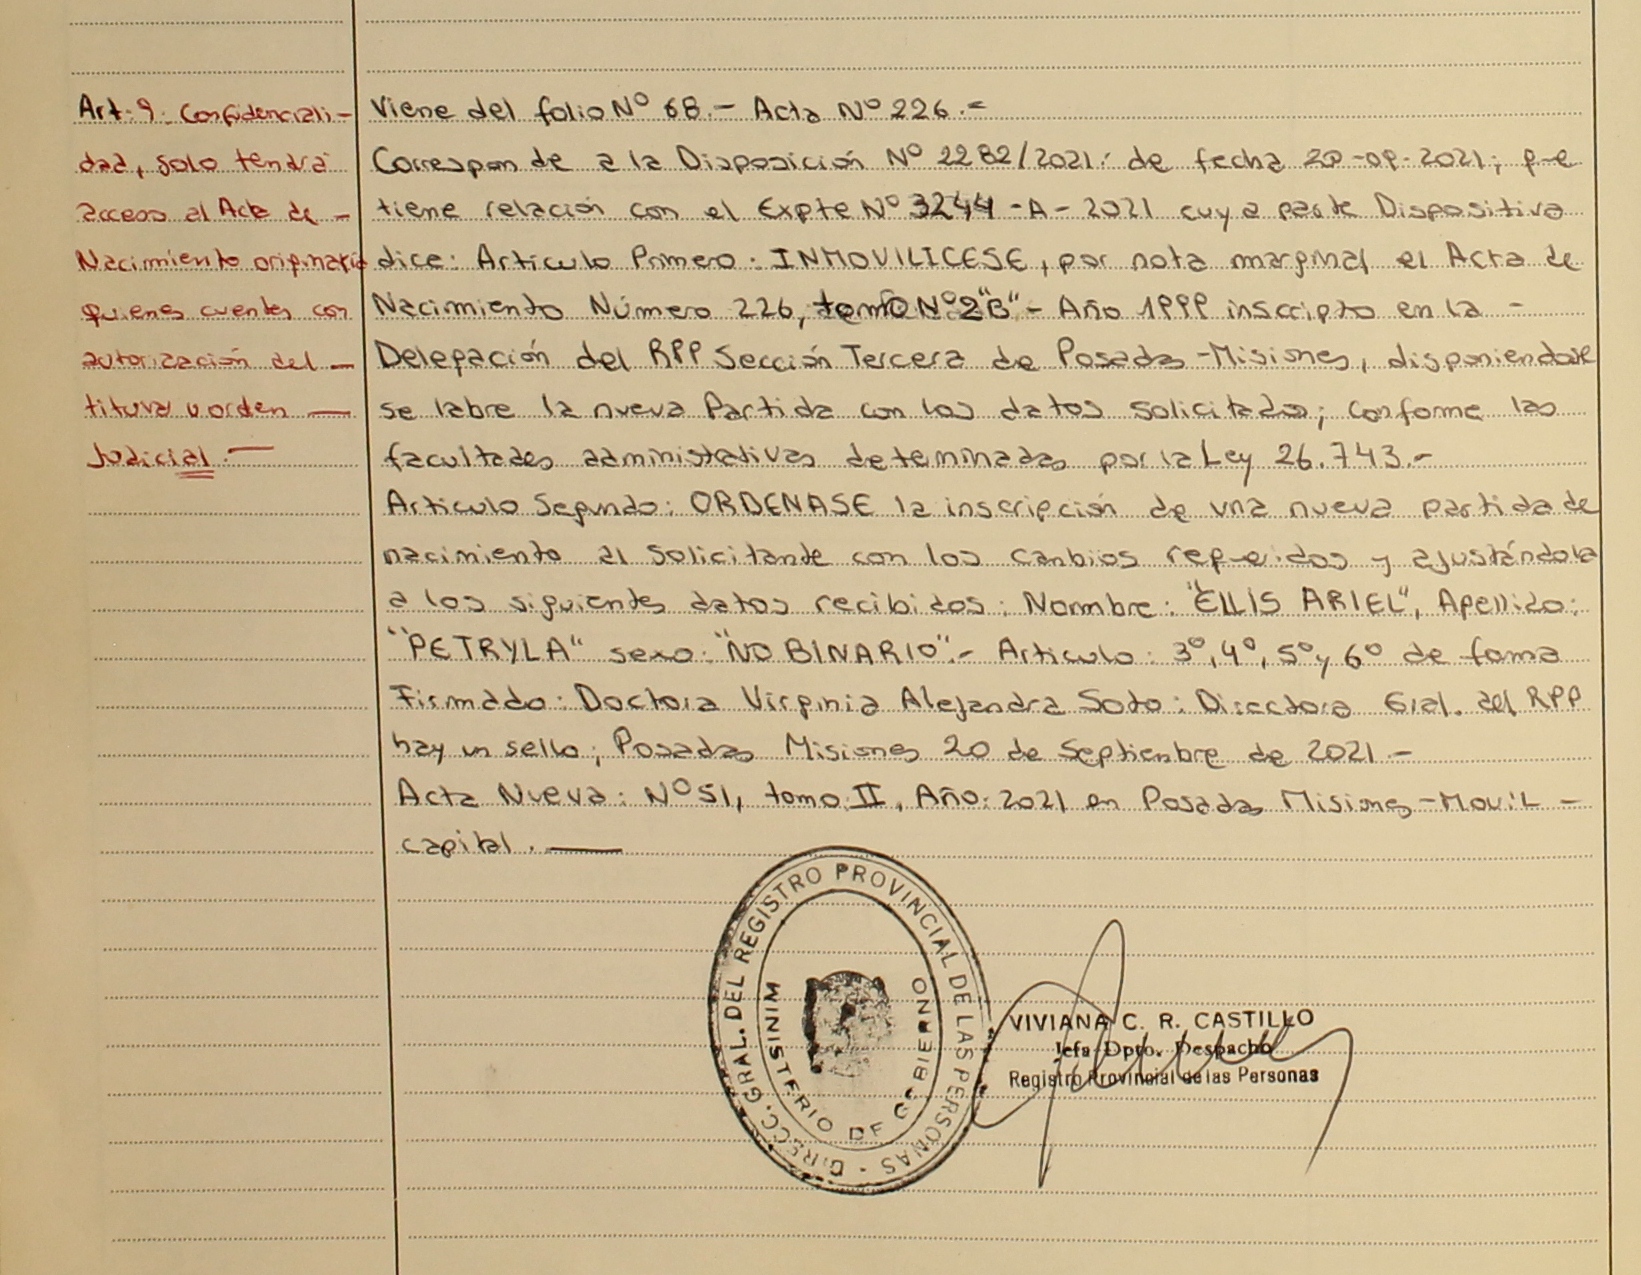 Art. 9. Confidenciali-
dad, solo tendrá
acceso al Acta de -
Nacimiento originaria
quienes cuentes con
autorización del -
titular u orden -
Judicial.-
Viene del folio Nº 68.- Acta Nº 226.-
Correspon de a la Disposición Nº 2282/2021: de fecha 20-09-2021; que
tiene relación con el Expte Nº 3244 -A- 2021 cuya parte Dispositiva
dice: Articulo Primero: INMOVILICESE, por nota marginal el Acta de
Nacimiento Número 226, tomo Nº 2"B"- Año 1999 inscripto en la -
Delegación del RPP Sección Tercera de Posadas-Misiones, disponiendose
se labre la nueva Partida con los datos solicitados; conforme las
facultades administrativas determinadas por la Ley 26.743.-
Articulo Segundo: ORDENASE la inscripción de una nueva partida de
nacimiento al solicitante con los cambios requeridos y ajustándola
a los siguientes datos recibidos: Nombre: "ELLIS ARIEL", Apellido:
"PETRYLA" sexo: "NO BINARIO".- Articulo: 3º, 4º, 5º y 6º de forma
Firmado: Doctora Virginia Alejandra Soto: Directora Gral. del RPP
hay un sello; Posadas Misiones 20 de Septiembre de 2021.-
Acta Nueva: Nº 51, tomo: II, Año: 2021 en Posadas Misiones-Movil -
capital.-
DIRECC. GRAL. DEL REGISTRO PROVINCIAL DE LAS PERSONAS -
MINISTERIO DE GOBIERNO
VIVIANA C. R. CASTILLO
Jefa Dpto. Despacho
Registro Provincial de las Personas